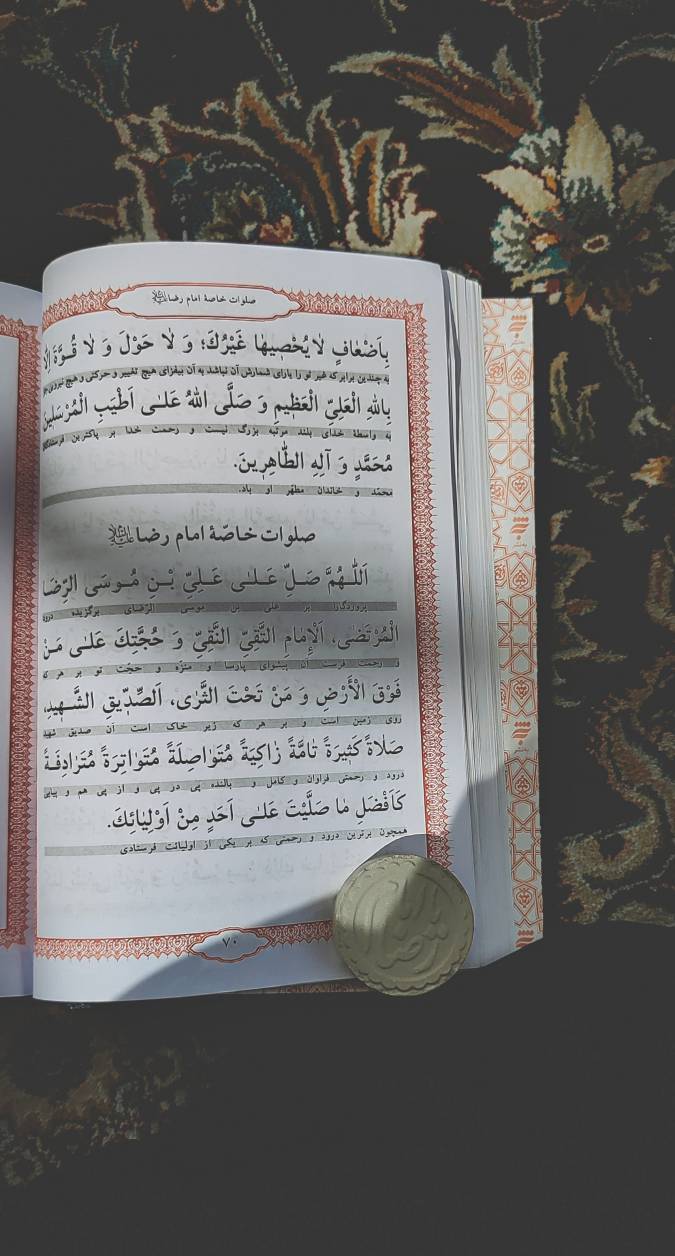 صلوات خاصهٔ امام رضا
بِاَضْعٰافٍ لاٰ يُحْصيهٰا غَيْرُكَ؛ وَ لاٰ حَوْلَ وَ لاٰ قُوَّةَ اِلّٰا
به چندین برابر که غیر تو را یارای شمارش آن نباشد به آن بیفزای هیچ تغییر و حرکتی و هیچ نیرویی جز
بِاللهِ الْعَلِيِّ الْعَظيمِ وَ صَلَّى اللهُ عَلـٰى اَطْيَبِ الْمُرْسَلينَ
به واسطهٔ خدای بلند مرتبه بزرگ نیست و رحمت خدا بر پاکترین فرستادگان
مُحَمَّدٍ وَ آلِهِ الطّٰاهِرينَ.
محمّد و خاندان مطهّر او باد.
صلوات خاصّهٔ امام رضا
اَللّٰـهُمَّ صَـلِّ عَلـٰى عَلِـيِّ بْـنِ مُـوسَى الرِّضَا
پروردگارا بر علی بن موسی الرّضای برگزیده درود
الْمُرْتَضٰى، اَلْاِمٰامِ التَّقِيِّ النَّقِيِّ وَ حُجَّتِكَ عَلـٰى مَـنْ
و رحمت فرست آن پیشوای پارسا و منزّه و حجّت تو بر هر که
فَوْقَ الْأَرْضِ وَ مَنْ تَحْتَ الثَّرٰى، اَلصِّدّيقِ الشَّـهيدِ،
روی زمین است و بر هر که زیر خاک است آن صدیق شهید
صَلاٰةً كَثيرَةً تٰامَّةً زٰاكِيَةً مُتَوٰاصِلَةً مُتَوٰاتِرَةً مُتَرٰادِفَـةً
درود و رحمتی فراوان و کامل و بالنده پی در پی و از پی هم و پیاپی
كَاَفْضَلِ مٰا صَلَّيْتَ عَلـٰى اَحَدٍ مِنْ اَوْلِيٰائِكَ.
همچون برترین درود و رحمتی که بر یکی از اولیائت فرستادی
۷۰